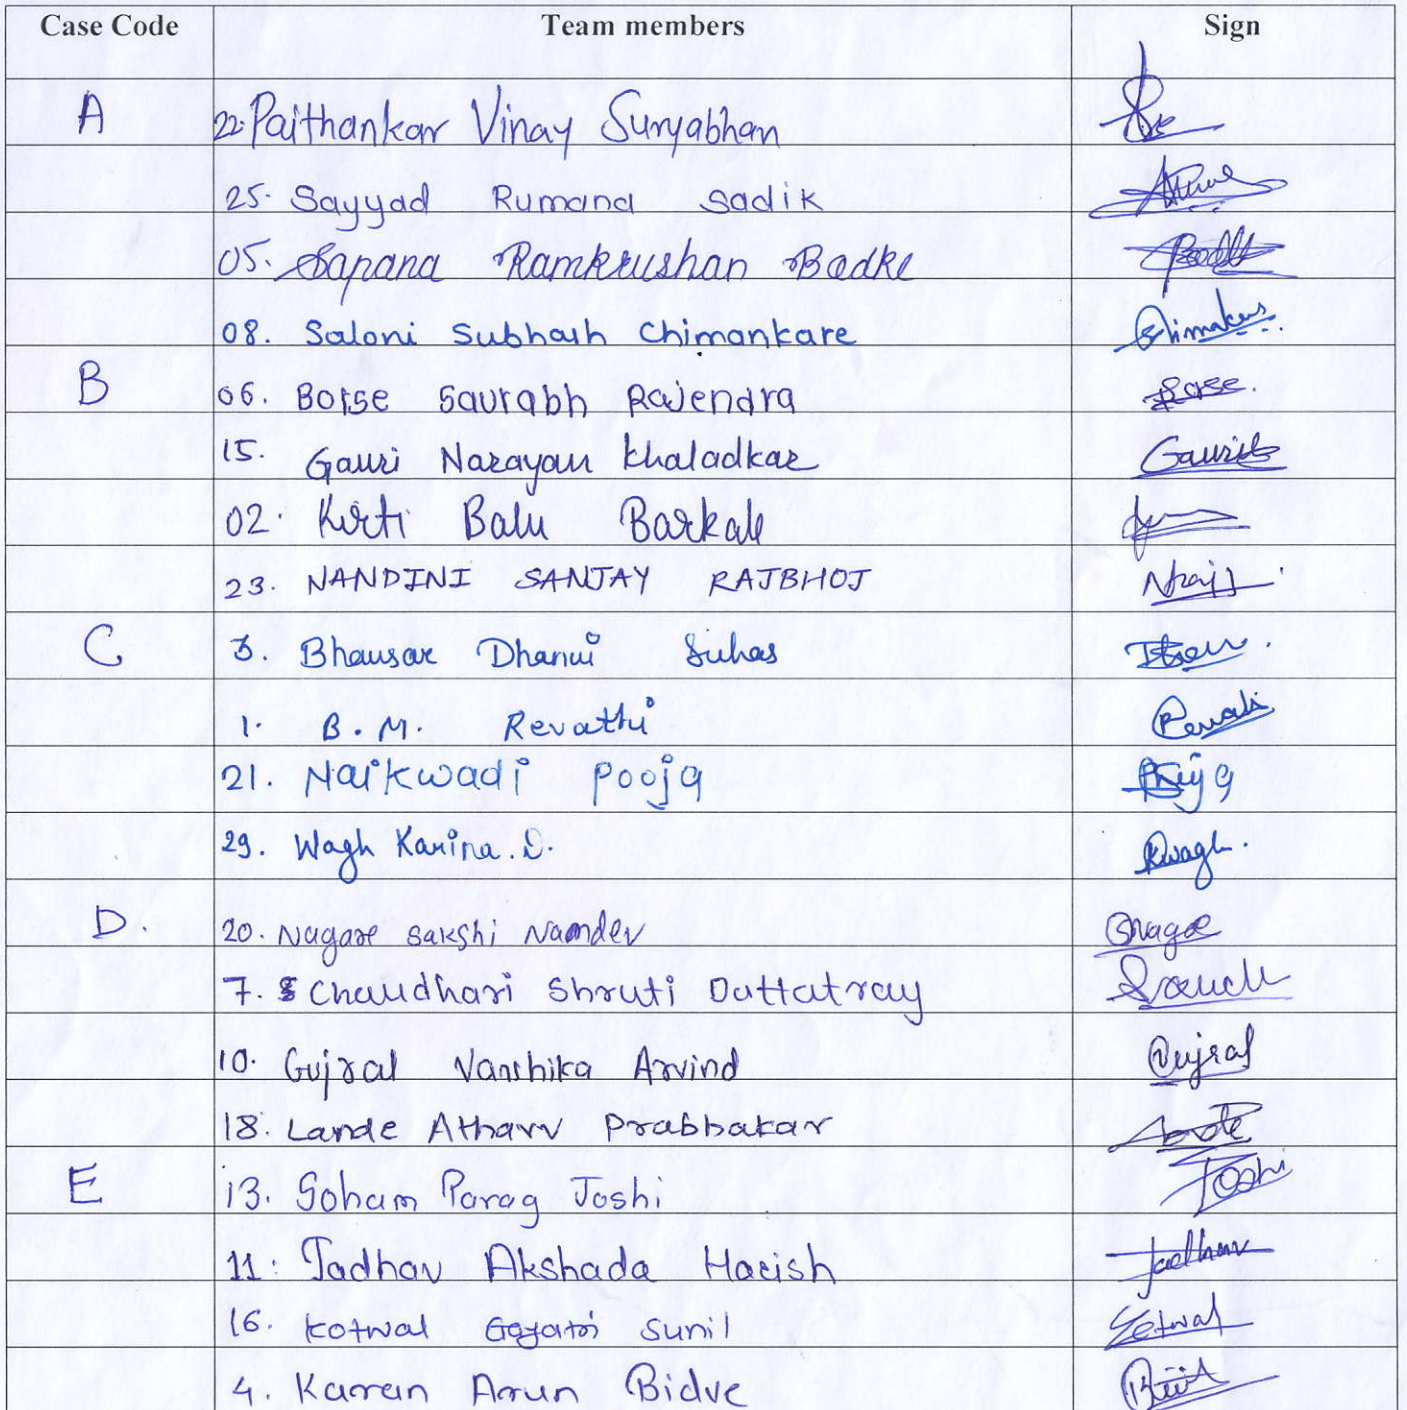 Case Code Team members Sign
A 22. Paithankar Vinay Suryabhan
25. Sayyad Rumana Sadik
05. Sapana Ramkrushan Badke
08. Saloni Subhash Chimankare Chimakars
B 06. Borse Saurabh Rajendra Borse.
15. Gauri Narayan Khaladkar Gaurik
02. Kirti Balu Barkale
23. NANDINI SANJAY RAJBHOJ
C 3. Bhausar Dhanvi Suhas
1. B.M. Revathi Revathi
21. Naikwadi Pooja
29. Wagh Karina. D. Kwagh.
D. 20. Nagare Sakshi Namdev
7. Chaudhari Shruti Dattatray
10. Gujral Vanshika Arvind Gujral
18. Lande Atharv Prabhakar
E 13. Soham Parag Joshi Joshi
11. Jadhav Akshada Harish Jadhav
16. Kotwal Gayatri Sunil Kotwal
4. Karan Arun Bidve